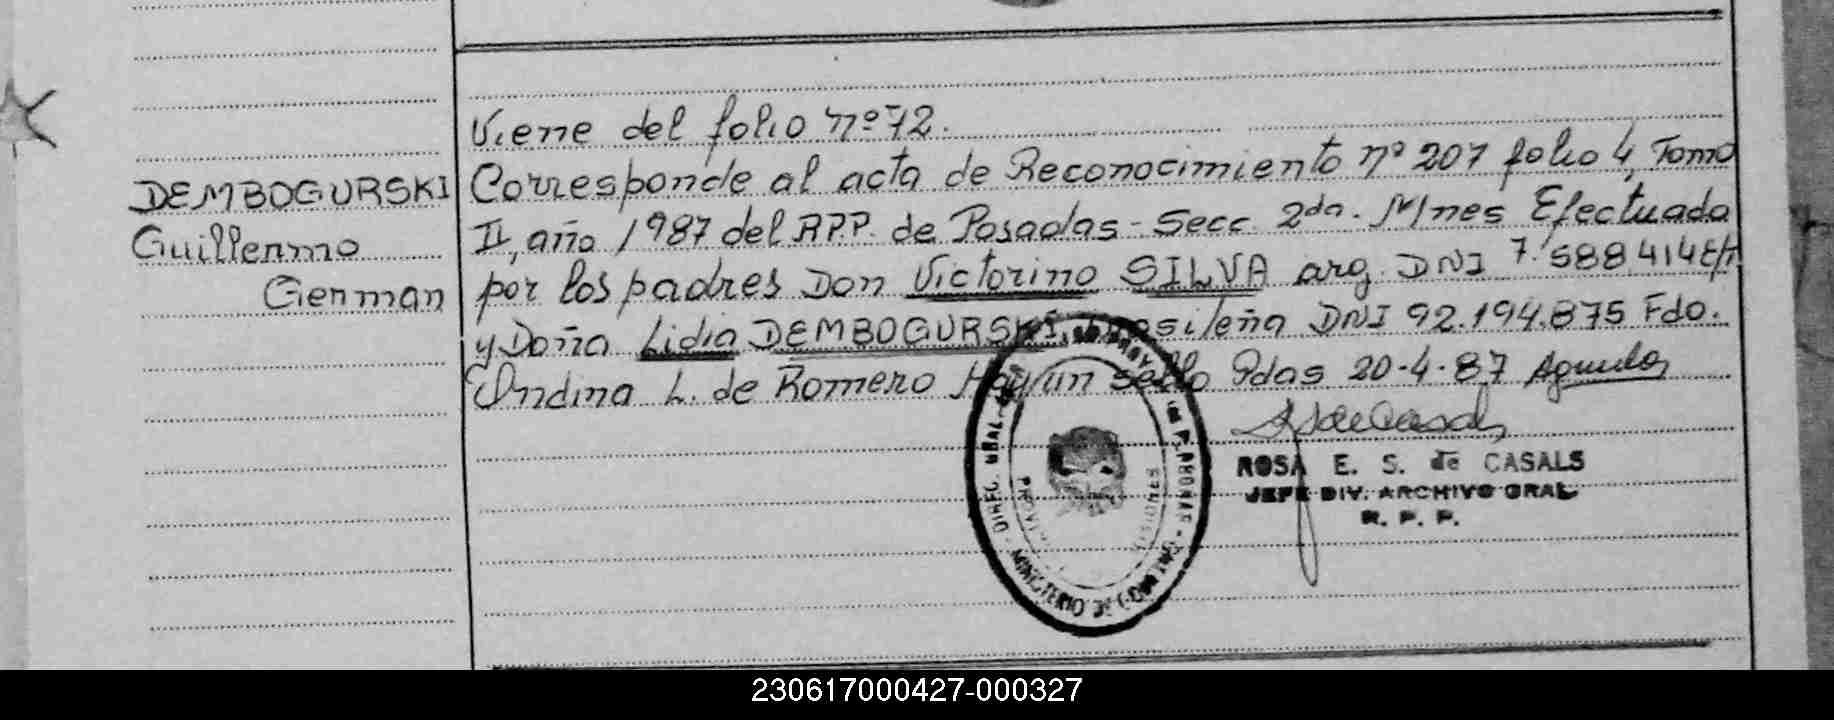 Viene del folio nº 72.
DEMBOGURSKI
Guillermo
German
Corresponde al acta de Reconocimiento nº 207 folio 4, Tomo
II, año 1987 del RPP. de Posadas - Secc. 2da. Mnes Efectuada
por los padres Don Victorino SILVA arg. DNI 7.588.414
y Doña Lidia DEMBOGURSKI, brasileña DNI 92.194.875 Fdo.
Ondina L. de Romero Hay un sello Pdas 20-4-87
ROSA E. S. de CASALS
JEFE DIV. ARCHIVO GRAL.
R. P. P.
DIREC. GRAL.
PROV.
DE LAS PERSONAS
MINISTERIO DE GOBIERNO
PROVINCIA
MISIONES
230617000427-000327